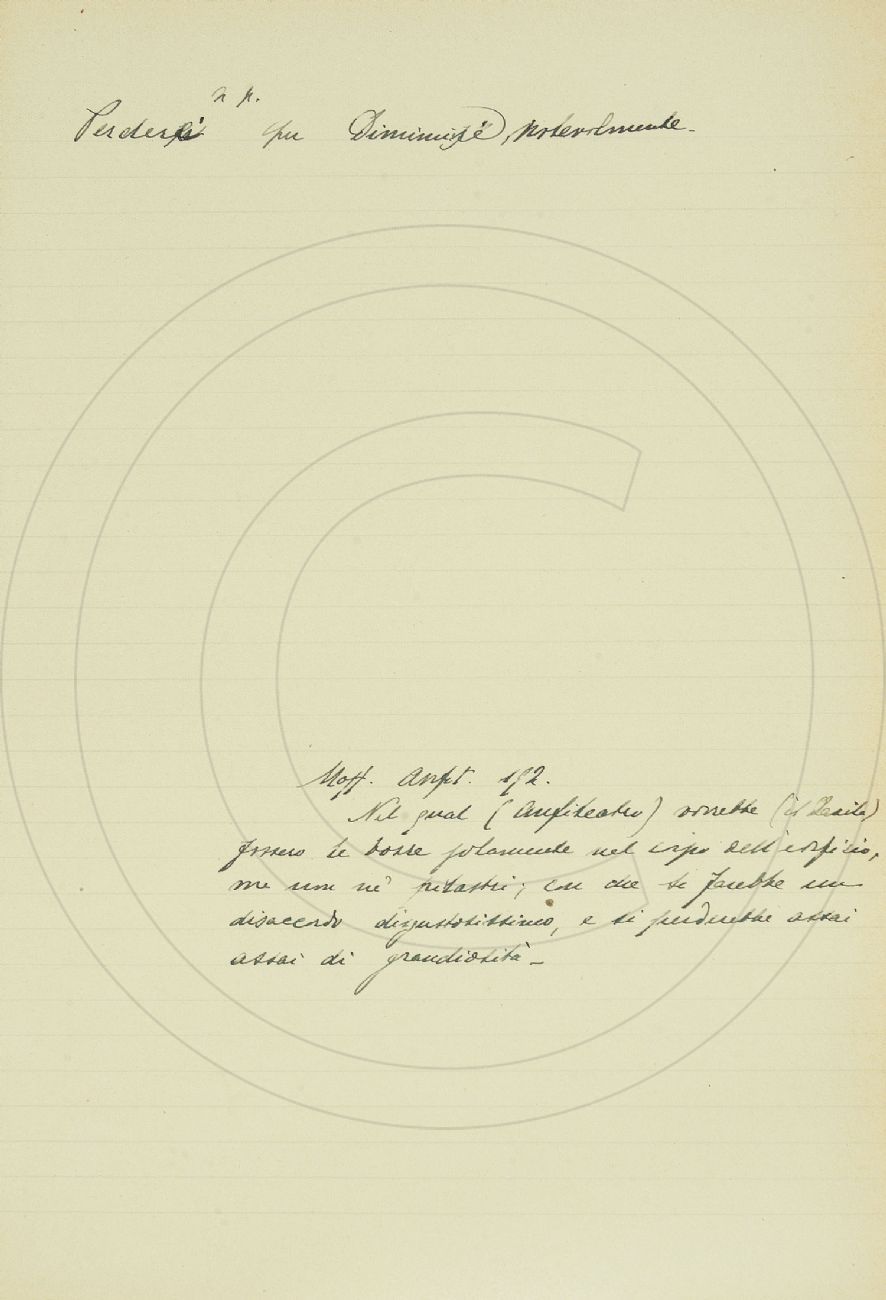 n p.
Perdersi per Diminuire, notevolmente.
Maff. Anfit. 192.
Nel qual (Anfiteatro) vorrebbe (il Desile)
fossero le bozze solamente nel corpo dell'edifizio,
ma non ne' pilastri; con che si farebbe un
disaccordo disgustosissimo, e si perderebbe assai
assai di grandiosità.